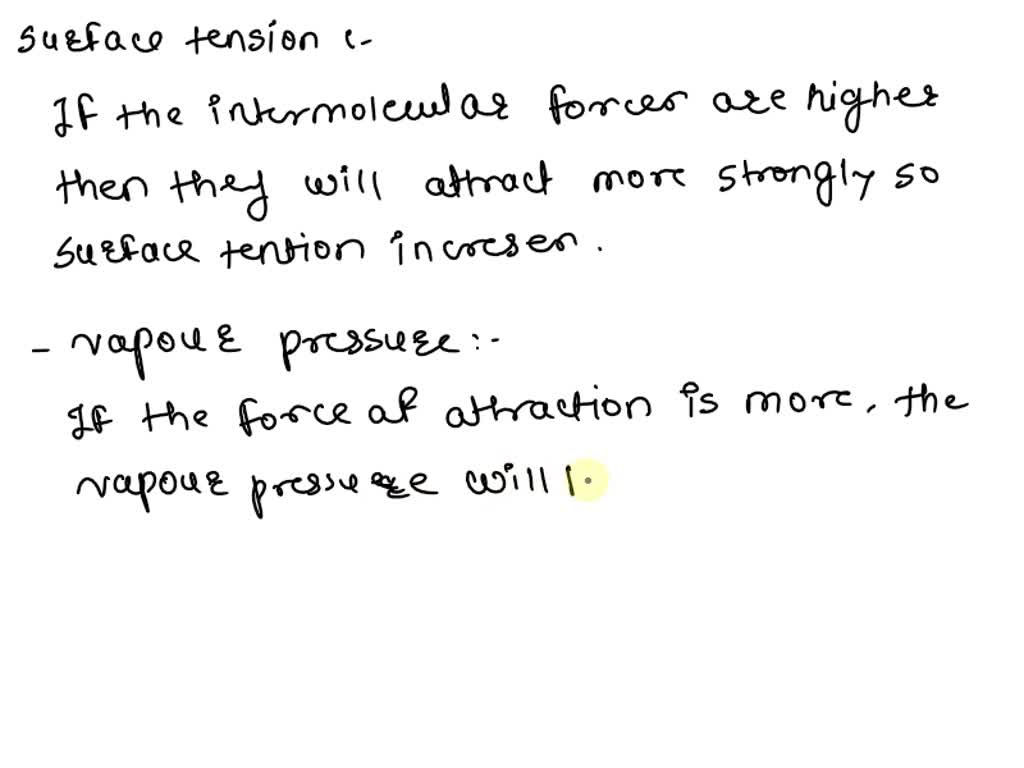 surface tension :-
If the intermolecular forces are higher
then they will attract more strongly so
surface tention increses.
- vapour pressure :-
If the force of attraction is more, the
vapour pressure will